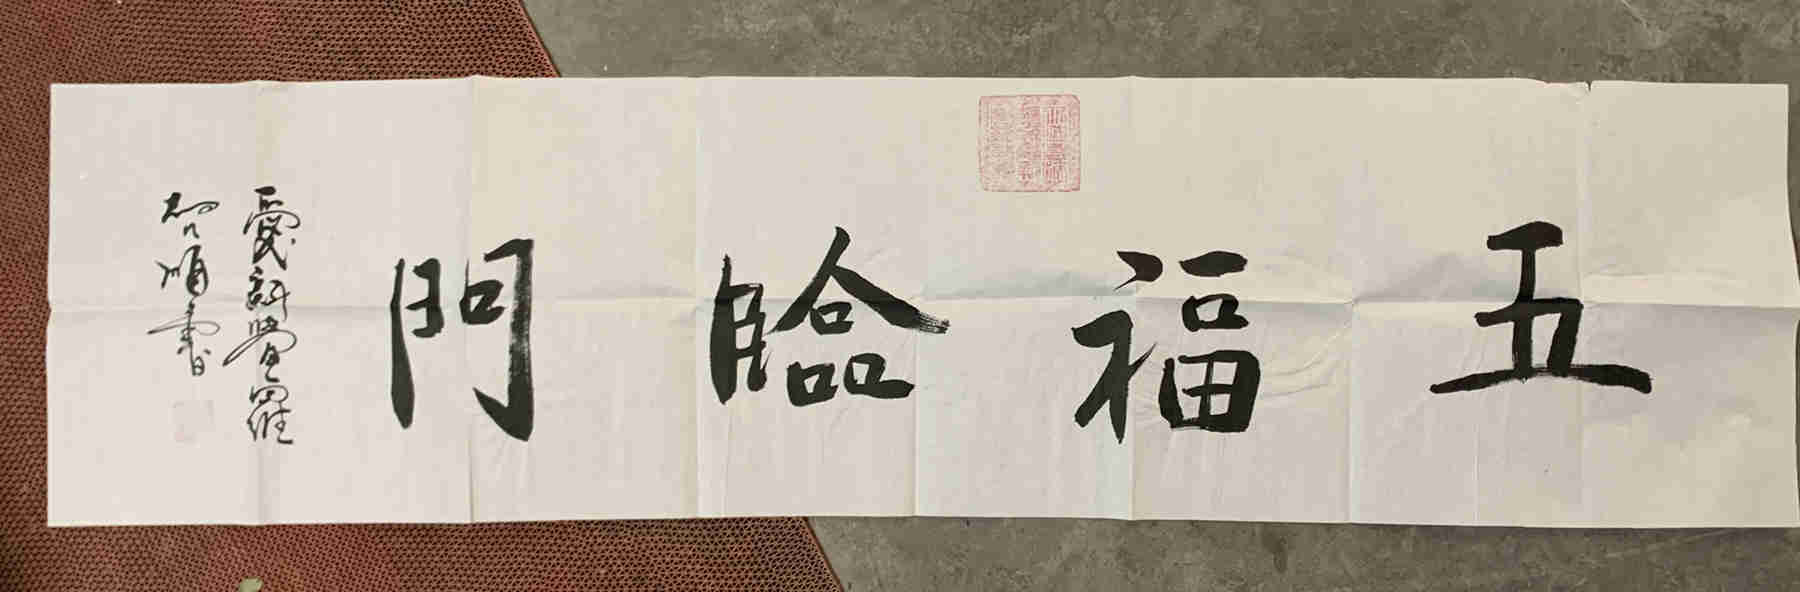 五福臨門
愛新覺羅
順書